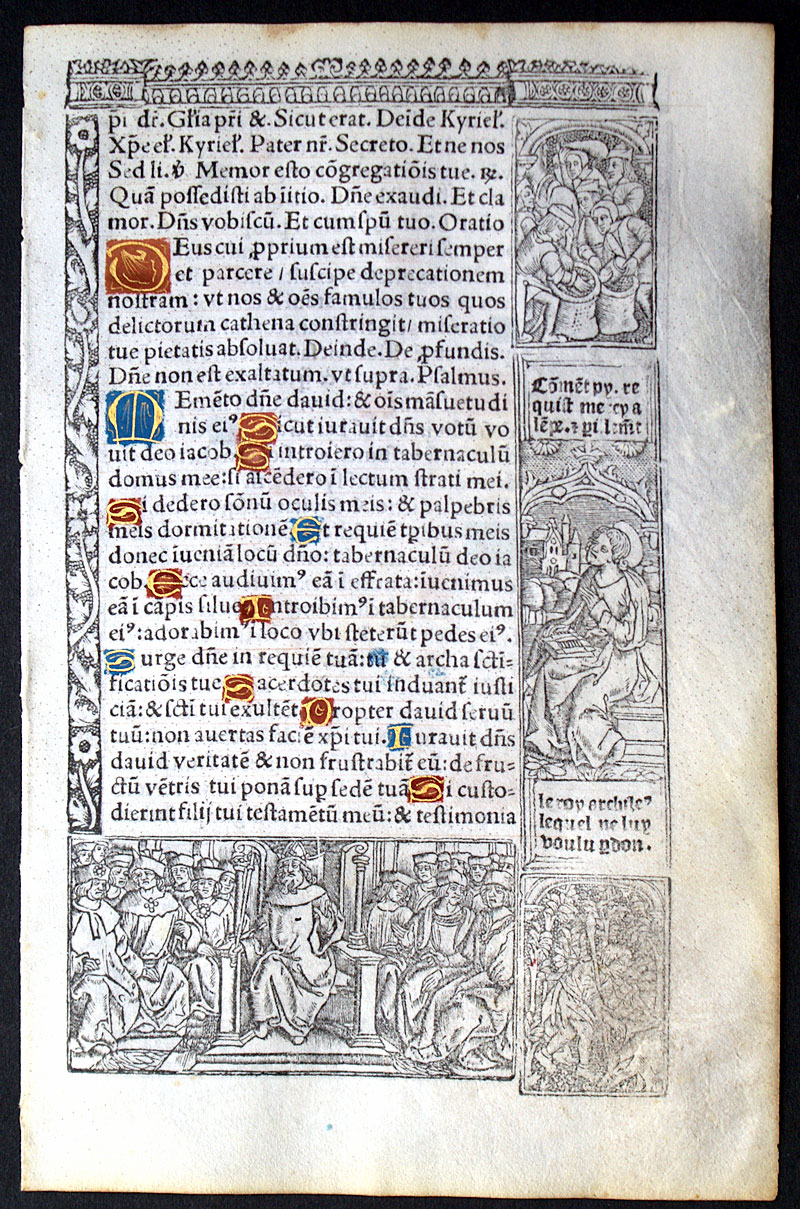 pi dr̄. Gl̄ia pr̄i &. Sicut erat. Deīde Kyrieł.
Xp̄e eł. Kyrieł. Pater nr̄. Secreto. Et ne nos
Sed li. ℣ Memor esto cōgregatiōis tue. ℞.
Quā possedisti ab iītio. Dn̄e exaudi. Et cla
mor. Dn̄s vobiscū. Et cum spū tuo. Oratio
DEus cui ꝓprium est misereri semper
et parcere / suscipe deprecationem
nostram : vt nos & oēs famulos tuos quos
delictorum cathena constringit/ miseratio
tue pietatis absoluat. Deinde. De ꝓfundis.
Dn̄e non est exaltatum. vt supra. Psalmus.
MEmēto dn̄e dauid: & oīs māsuetudi
nis eiꝰ Sicut iurauit dn̄s votū vo
uit deo iacob. Si introiero in tabernaculū
domus mee: si ascedero ī lectum strati mei.
Si dedero sōnū oculis meis: & palpebris
meis dormitationē Et requiē tp̄ibus meis
donec īueniā locū dn̄o: tabernaculū deo ia
cob. Ecce audiuimꝰ eā ī effrata: īuenimus
eā ī cāpis silue Introibimꝰ ī tabernaculum
eiꝰ: adorabimꝰ ī loco vbi steterūt pedes eiꝰ.
Surge dn̄e in requiē tuā: tu & archa scti=
ficatiōis tue Sacerdotes tui induant̄ iusti
ciā: & scti tui exultēt Propter dauid seruū
tuū: non auertas faciē xp̄i tui. Iurauit dn̄s
dauid veritatē & non frustrabit̄ eū: de fru=
ctū vētris tui ponā sup̱ sedē tuā Si custo=
dierint filij tui testamētū meū: & testimonia
Cōmēt py. re
quist mercy a
le roy archileꝰ
lequel ne luy
voulu ydon.